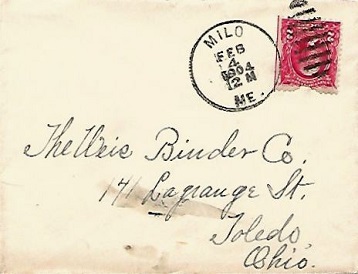 MILO
FEB
4
1904
12 M
ME.
2 2
The Weis Binder Co.
141 Lagrange St.
Toledo,
Ohio.